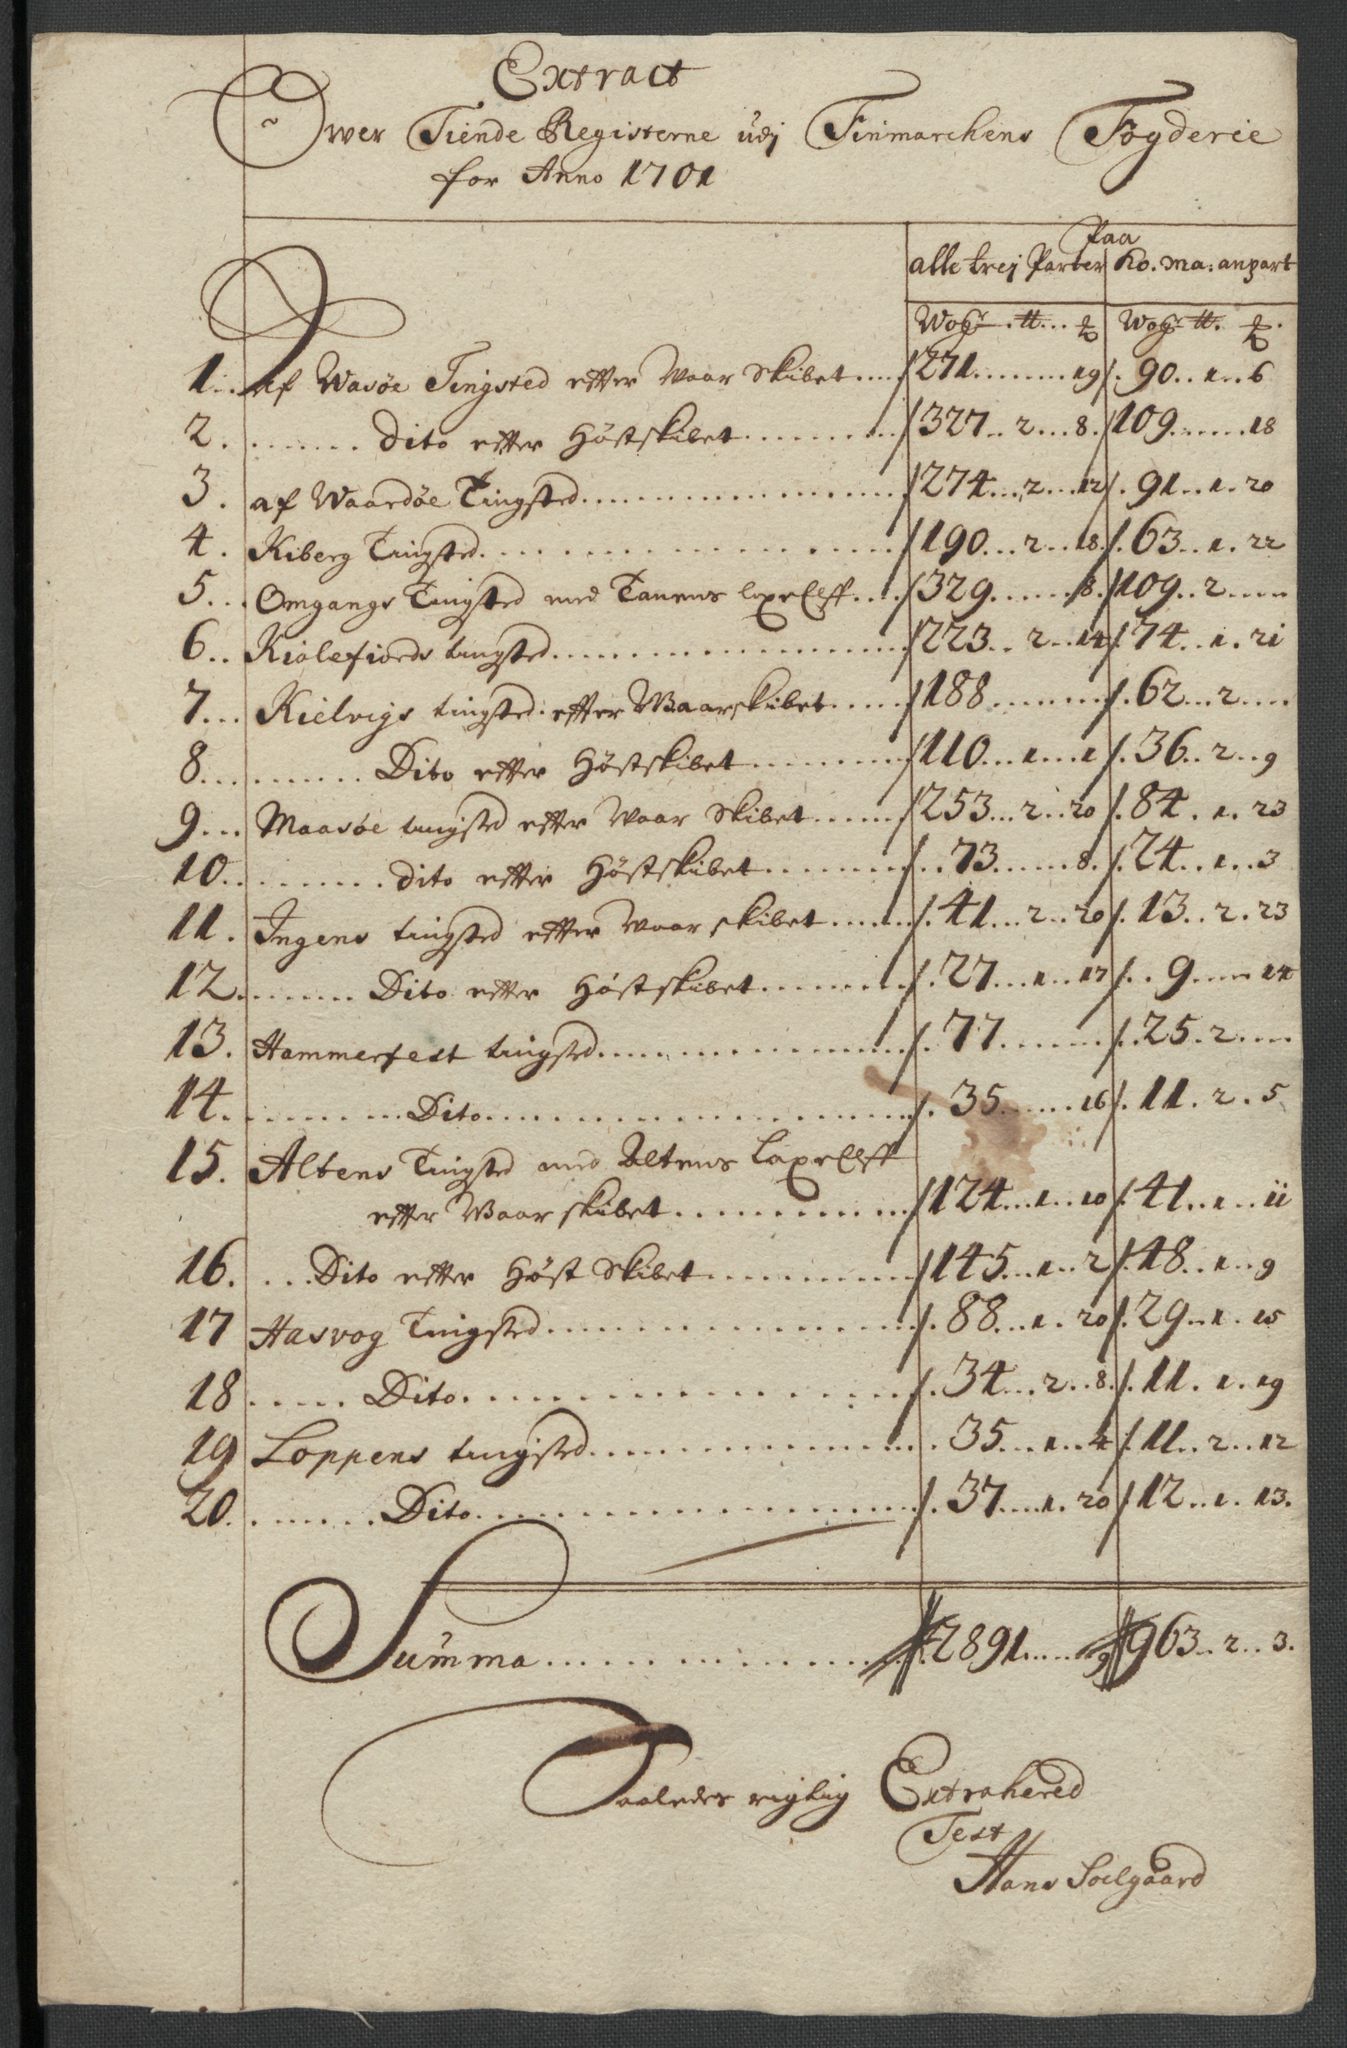 Extract
Over Tiende Registerne udj Finmarchens Fogderie
for Anno 1701
Paa
alle trej Parter Ko. Ma: anpart
Wogr tt Wogr tt
1.. af Wasøe Tingsted effter Waar Skibet .... 271 ........ 19 . 90 .. 1 .. 6
2. ....... dito effter Høstskibet ......... 327 .. 2 ... 8. 109 ...... 18
3. af Waardøe Tingsted ............... 274 ... 2 ... 12 . 91 .. 1. 20
4. Kiberg Tingsted ............... 190 ... 2 ... 18. . 63 .. 1. 22
5... Omgangs Tingsted med Tanens laxeElff .... 329 ...... 8. 109 .. 2 ....
6.. Kiølefiords tingsted ............... 223 .. 2 .. 14 . 74 .. 1. 21
7... Kielvigs tingsted effter Waarskibet ..... 188 ....... . 62 ... 2 ....
8... ....... Dito effter Høstskibet ........ 110 ... 1 ... 1 . 36 .. 2 .. 9
9... Maasøe tingsted effter Waar Skibet ..... 253 ... 2 .. 20 . 84 . 1. 23
10. ........ dito effter Høstskibet ....... 73 ...... 8. . 24 .. 1 .. 3
11. Ingens tingsted effter Waar skibet ...... 41 ... 2 .. 20 . 13 .. 2. 23
12. ....... Dito effter Høstskibet ........ 27 ... 1 .. 17 . . 9 .... 14
13. Hammerfest tingsted ............... 77 ....... . 25. 2 ....
14. ....... Dito ............... 35 ...... 16 . 11. 2. 5
15. Altens Tingsted med Altens LaxeElff
effter Waar skibet ............ 124 ... 1 ... 10 . 41 ... 1 ... 11
16. ... Dito effter Høst Skibet .......... 145 ... 1 .. 2 . 48 .. 1 .. 9
17 Hasvog Tingsted ............... 88 ... 1. 20 . 29 .. 1. 15
18 ..... Dito ............... 34 ... 2 .. 8. . 11. 1. 19
19 Loppens tingsted ............... 35 ... 1 ... 4 . 11 .. 2 .. 12
20. ....... Dito ............... 37 .... 1. 20 . 12 .. 1. 13.
Summa ............... 2891 ...... 9 963 .. 2 .. 3.
Saaledes rigtig Extrahered
Test
Hans Soelgaard